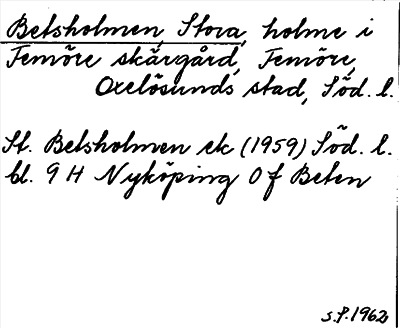 Betsholmen, Stora, holme i
Femöre skärgård, Femöre,
Oxelösunds stad, Söd. l.
St. Betsholmen ek (1959) Söd. l.
bl. 9 H Nyköping 0 f Beten
S.P. 1962